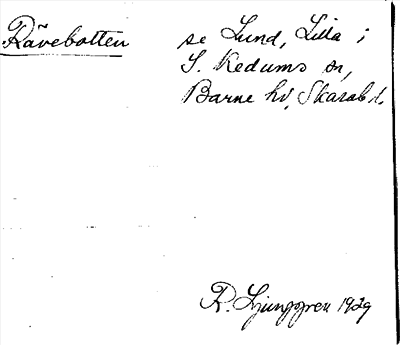 Rävebotten se Lund, Lilla i
S. Kedums sn,
Barne hd, Skarab. l.
R. Ljunggren 1929